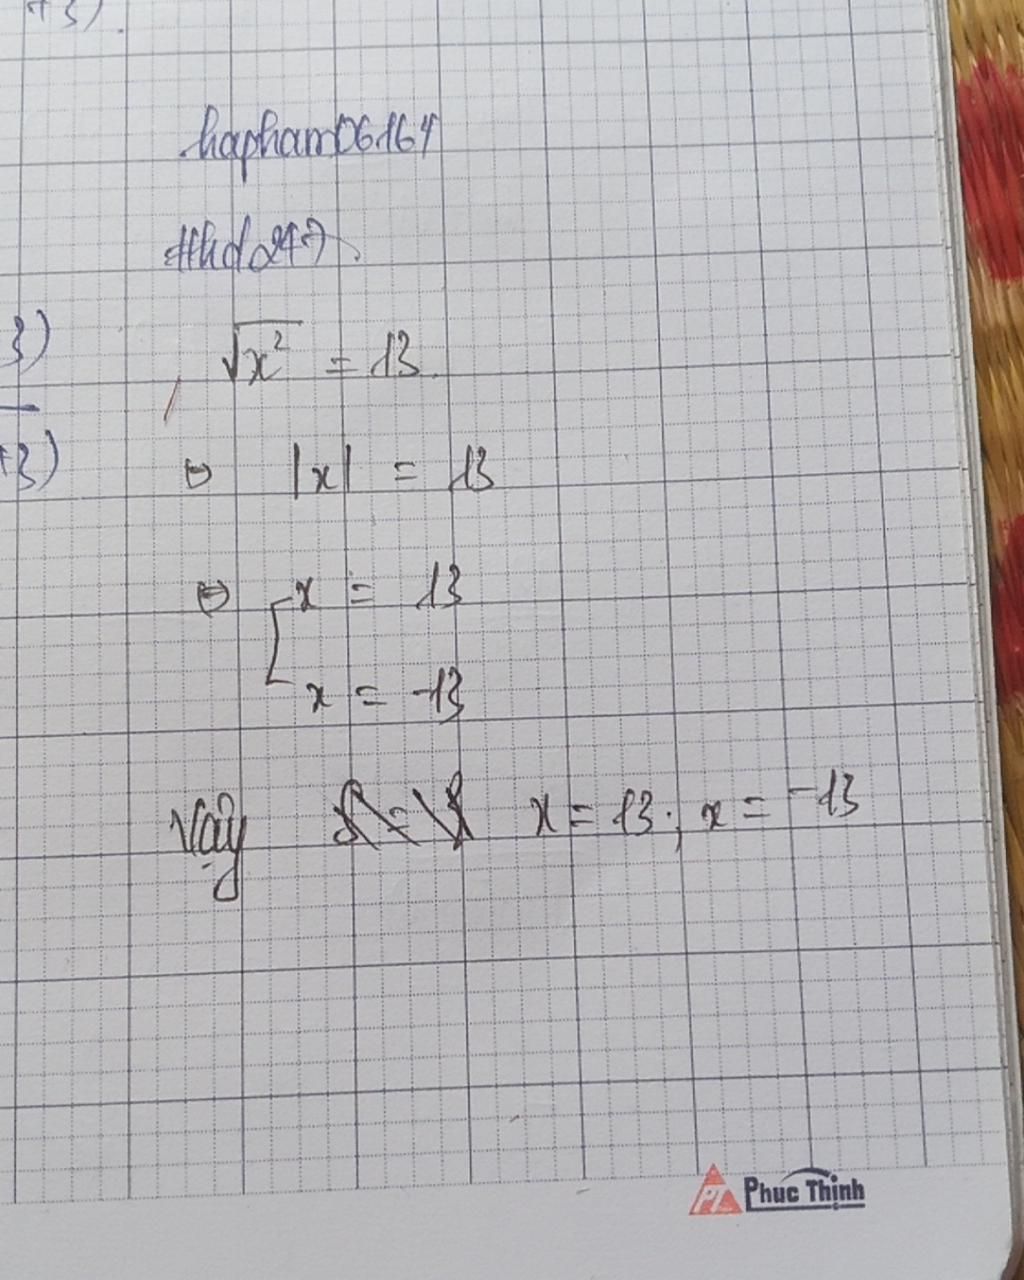 +3).
hapham06164
#hd247
3)
√x² = 13.
+3)
⇔ |x| = 13
⇔ [x = 13
x = -13
Vậy x = 13 ; x = -13
PT Phuc Thinh